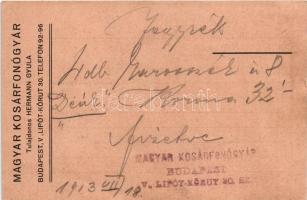 MAGYAR KOSÁRFONÓGYÁR
Tulajdonos HERMANN GYULA
BUDAPEST, V., LIPÓT-KÖRUT 30. TELEFON 92-96
Jegyzék
á 8
Korona 32'–
Fizetve
MAGYAR KOSÁRFONÓGYÁR
BUDAPEST
V., LIPÓT-KÖRUT 30. SZ.
1913 VII/18.